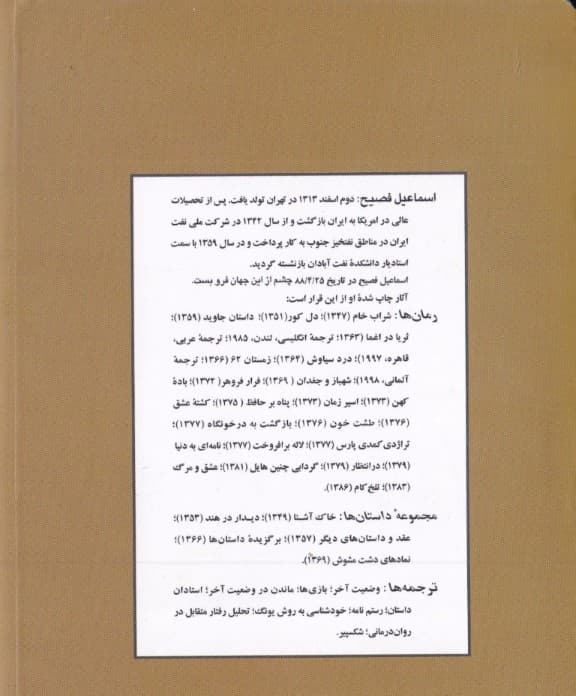 اسماعیل فصیح: دوم اسفند ۱۳۱۳ در تهران تولد یافت. پس از تحصیلات
عالی در امریکا به ایران بازگشت و از سال ۱۳۴۲ در شرکت ملی نفت
ایران در مناطق نفتخیز جنوب به کار پرداخت و در سال ۱۳۵۹ با سمت
استادیار دانشکدهٔ نفت آبادان بازنشسته گردید.
اسماعیل فصیح در تاریخ ۸۸/۴/۲۵ چشم از این جهان فرو بست.
آثار چاپ شدهٔ او از این قرار است:
رمان‌ها: شراب خام (۱۳۴۷)؛ دل کور(۱۳۵۱)؛ داستان جاوید (۱۳۵۹)؛
ثریا در اغما (۱۳۶۳؛ ترجمهٔ انگلیسی، لندن، ۱۹۸۵؛ ترجمهٔ عربی،
قاهره، ۱۹۹۷)؛ درد سیاوش (۱۳۶۴)؛ زمستان ۶۲ (۱۳۶۶؛ ترجمهٔ
آلمانی، ۱۹۹۸)؛ شهباز و جغدان ( ۱۳۶۹)؛ فرار فروهر( ۱۳۷۲)؛ بادهٔ
کهن (۱۳۷۳)؛ اسیر زمان (۱۳۷۳)؛ پناه بر حافظ ( ۱۳۷۵)؛ کشتهٔ عشق
(۱۳۷۶)؛ طشت خون (۱۳۷۶)؛ بازگشت به درخونگاه (۱۳۷۷)؛
تراژدی/کمدی پارس (۱۳۷۷)؛ لاله برافروخت (۱۳۷۷)؛ نامه‌ای به دنیا
(۱۳۷۹)؛ در انتظار (۱۳۷۹)؛ گردابی چنین هایل (۱۳۸۱)؛ عشق و مرگ
(۱۳۸۳)؛ تلخ‌کام (۱۳۸۶).
مجموعهٔ داستان‌ها: خاک آشنا (۱۳۴۹)؛ دیدار در هند (۱۳۵۳)؛
عقد و داستان‌های دیگر (۱۳۵۷)؛ برگزیدهٔ داستان‌ها (۱۳۶۶)؛
نمادهای دشت مشوش (۱۳۶۹).
ترجمه‌ها: وضعیت آخر؛ بازی‌ها؛ ماندن در وضعیت آخر؛ استادان
داستان؛ رستم نامه؛ خودشناسی به روش یونگ؛ تحلیل رفتار متقابل در
روان‌درمانی؛ شکسپیر.